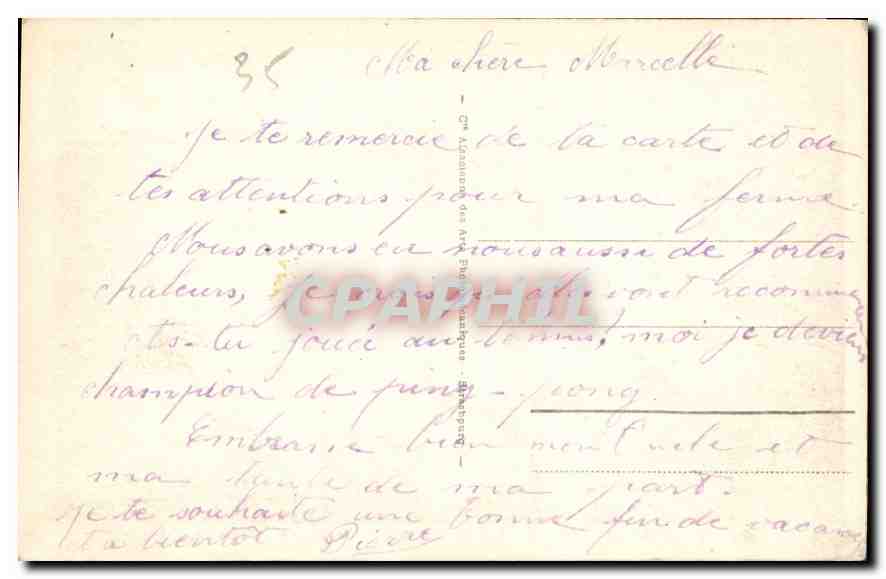 35
Ma chère Marcelle
Je te remercie de ta carte et de
tes attentions pour ma ferme.
Nous avons eu nous aussi de fortes
chaleurs, je crois qu'elles vont recommencer
As-tu joué au tennis, moi je deviens
champion de ping-pong
Embrasse bien mon Oncle et
ma tante de ma part.
Je te souhaite une bonne fin de vacances
à bientôt Pierre
Cie Alsacienne des Arts Photomécaniques - Strasbourg
CPAPHIL